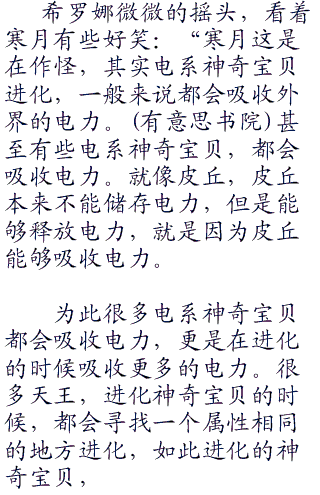 希罗娜微微的摇头，看着
寒月有些好笑：“寒月这是
在作怪，其实电系神奇宝贝
进化，一般来说都会吸收外
界的电力。(有意思书院)甚
至有些电系神奇宝贝，都会
吸收电力。就像皮丘，皮丘
本来不能储存电力，但是能
够释放电力，就是因为皮丘
能够吸收电力。
为此很多电系神奇宝贝
都会吸收电力，更是在进化
的时候吸收更多的电力。很
多天王，进化神奇宝贝的时
候，都会寻找一个属性相同
的地方进化，如此进化的神
奇宝贝，